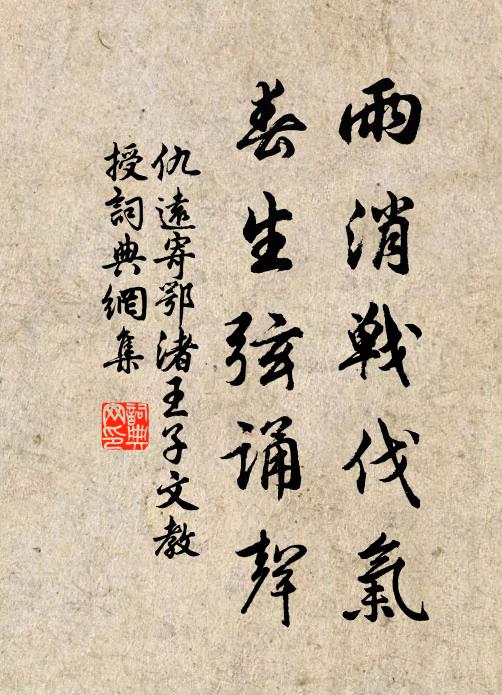 雨消戰伐氣
春生弦誦聲
仇遠寄鄂渚王子文教
授詞典網集
詞典網印